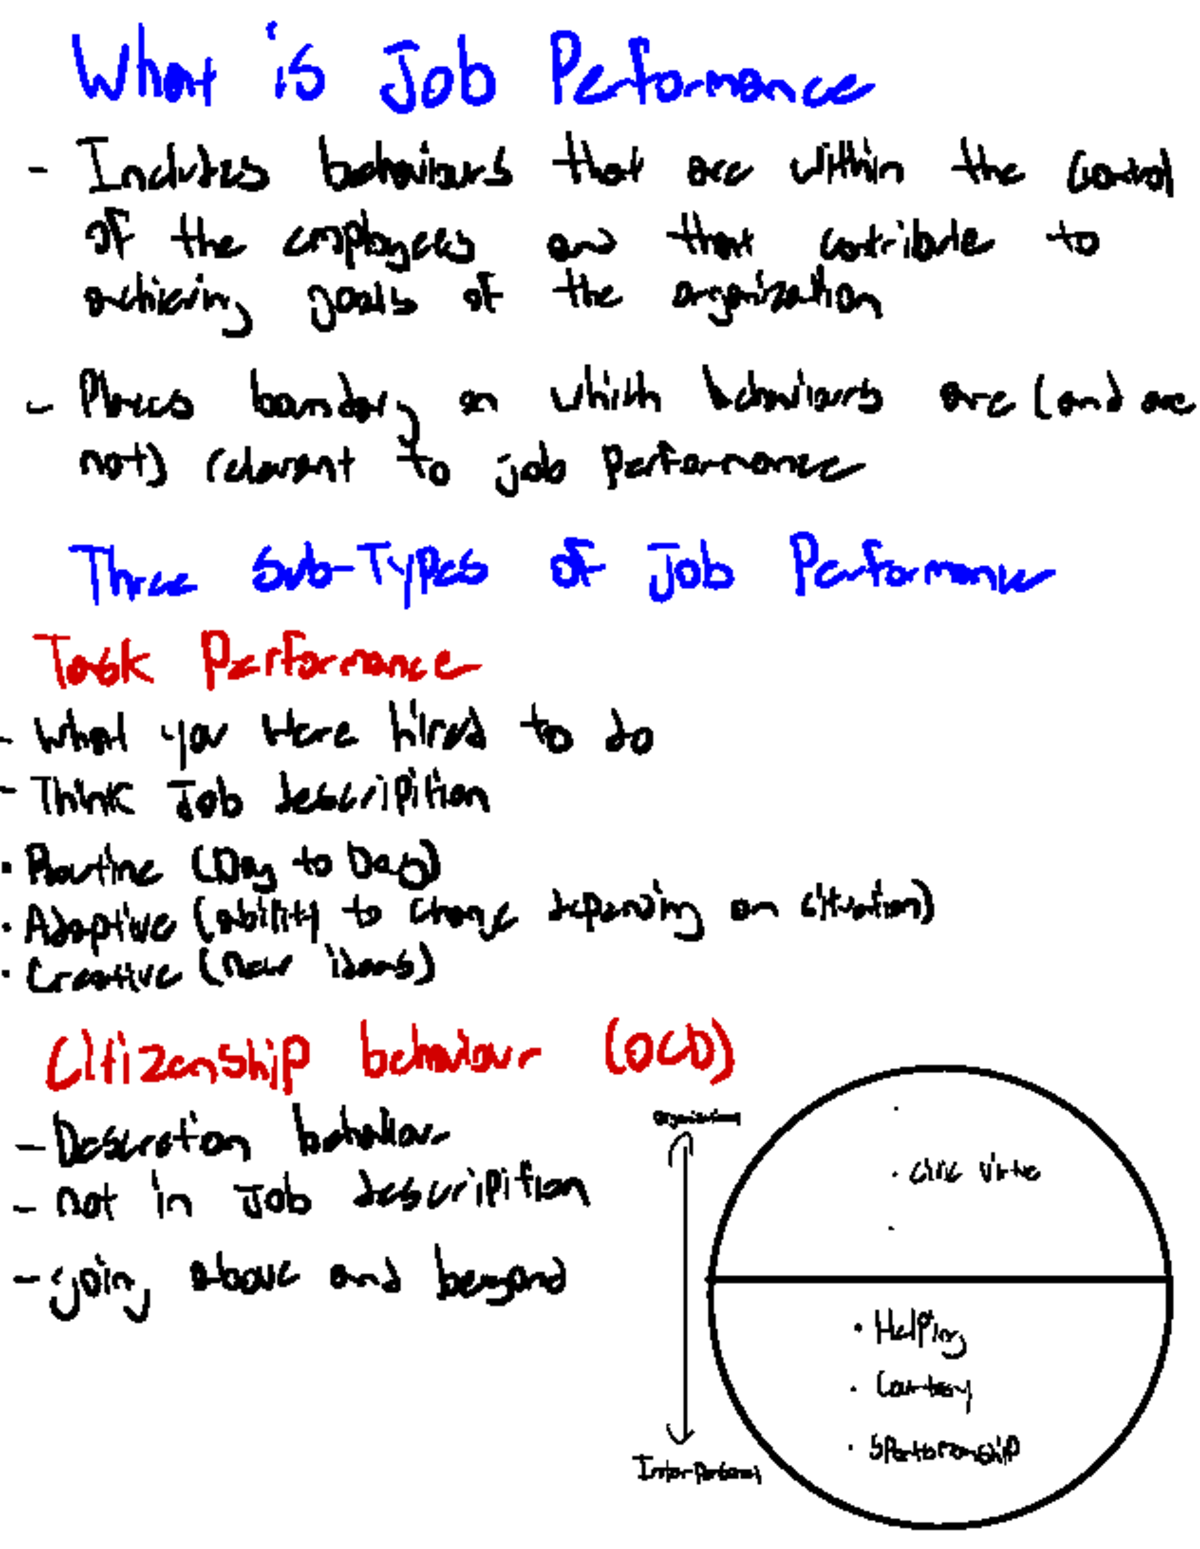 What is Job Performance
- Includes behaviours that are within the control
of the employees and that contribute to
achieving goals of the organization
- Places boundary on which behaviours are (and are
not) relevant to job performance
Three Sub-Types of Job Performance
Task Performance
- What you were hired to do
- Think Job descripition
• Routine (Day to Day)
• Adaptive (ability to change depending on situation)
• Creative (new ideas)
Citizenship behaviour (OCD)
- Descretion behaviour
- not in Job descripition
- going above and beyond
Organizational
• civic virtue
• Helping
• Courtesy
• Sportsmanship
Interpersonal